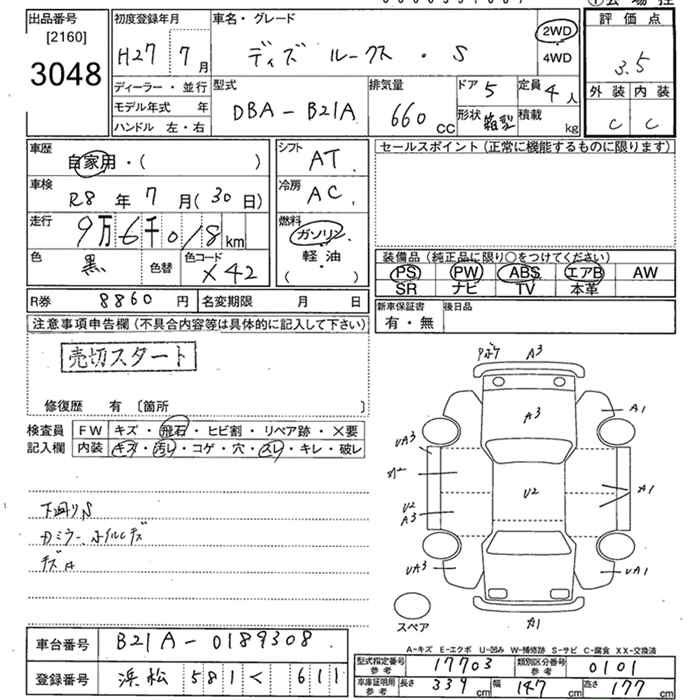 出品番号
[2160]
3048
初度登録年月
H27 7月
車名・グレード
ディズ ルークス ・ S
2WD
4WD
評価点
3.5
外装 内装
C C
ディーラー・並行
モデル年式 年
ハンドル 左・右
型式
DBA-B21A
排気量
660 cc
ドア 5
定員 4人
形状 箱型
積載 kg
車歴
自家用・( )
車検
R8年 7月(30日)
走行
9万6千018km
色
黒
色替
色コード
X42
シフト
AT
冷房
AC
燃料
ガソリン
・
軽・油
( )
セールスポイント(正常に機能するものに限ります)
装備品(純正品に限り○をつけてください)
PS PW ABS エアB AW
SR ナビ TV 本革
R券 8860円
名変期限 月 日
新車保証書
有・無
後日品
注意事項申告欄(不具合内容等は具体的に記入して下さい)
売切スタート
修復歴 有 〔箇所 〕
検査員
記入欄
FW キズ・飛石・ヒビ割・リペア跡・×要
内装 キズ・汚レ・コゲ・穴・スレ・キレ・破レ
下廻りS
カミラー、ホイルキズ
キズA
A3
A3
A1
UA3
U2
U2
A3
A1
UA3
UA1
A1
スペア
A-キズ E-エクボ U-凹み W-補修跡 S-サビ C-腐食 XX-交換済
車台番号 B21A-0189308
登録番号 浜松 581 く 611
型式指定番号
参考
17703
類別区分番号
参考
0101
車庫証明用
参考
長さ 339cm 幅 147cm 高さ 177cm